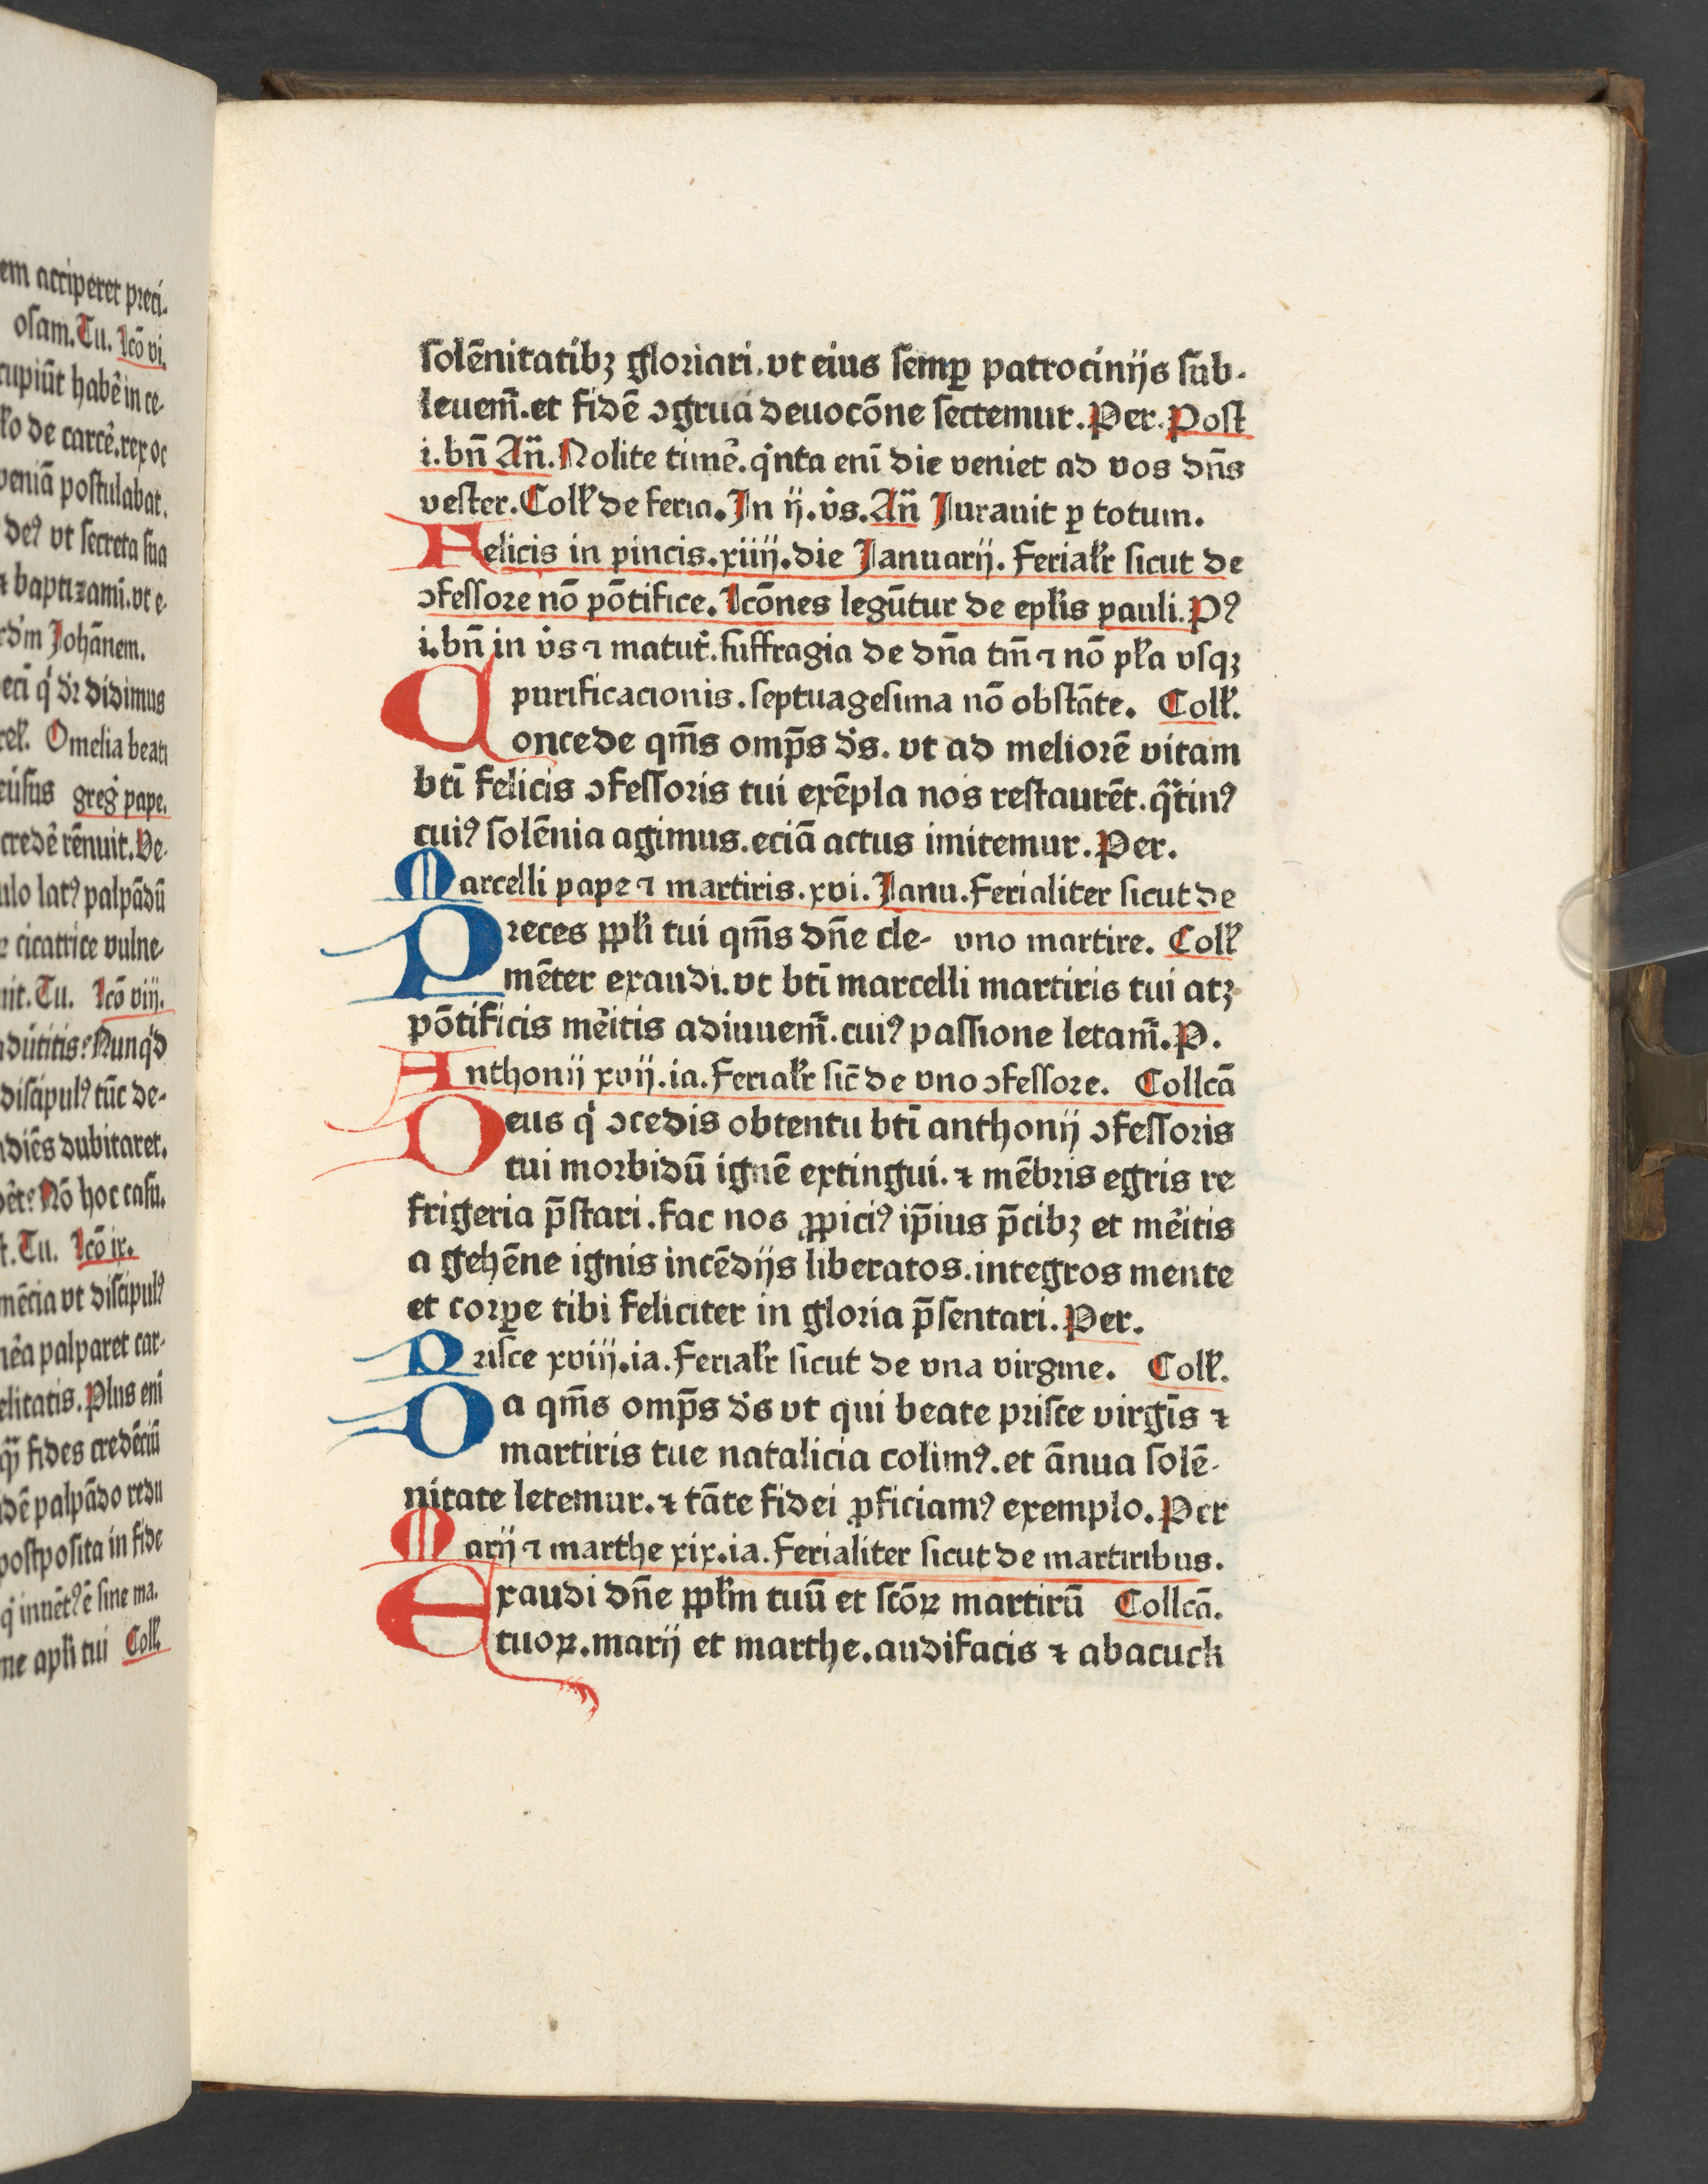 em acciperet preci-
osam. Tu. Lcō vi.
cupiūt habē in ce-
de carcē. rex oc
veniā postulabat.
de⁹ vt secreta sua
⁊ baptizami. vt e-
Johānem.
didimus
Omelia beati
greg̓ pape.
credē rēnuit. De-
lat⁹ palpādū
cicatrice vulne-
Tu. Lcō viij.
Nunq̇d
discipul⁹ tūc de-
dubitaret.
Nō hoc casu.
Tu. Lcō ix.
vt discipul⁹
palparet car-
Plus eni
fides credēciū
palpādo redu
postposita in fide
q̇ inuēt⁹ ē sine ma.
apl̄i tui Coll̄.
solēnitatibꝫ gloriari. vt eius semꝑ patrocinijs sub-
leuem̄. et fidē ↄgrua deuocōne sectemur. Per. Post
i. bn̄ An̄. Nolite timē. q̇nta eni die veniet ad vos dn̄s
vester. Coll̄ de feria. In ij. v̓s. An̄ Jurauit ꝑ totum.
Felicis in pincis. xiiij. die Januarij. Ferial̄r sicut de
ↄfessore nō pōtifice. Lcōnes legūtur de epl̄is pauli. P⁹
i. bn̄ in v̓s ⁊ matut̓. suffragia de dn̄a tm̄ ⁊ nō pl̄a vsqꝫ
purificacionis. septuagesima nō obstāte. Coll̄.
Concede qm̄s omp̄s d̓s. vt ad meliorē vitam
bti̅ felicis ↄfessoris tui exēpla nos restaurēt. q̄tin⁹
cui⁹ solēnia agimus. eciā actus imitemur. Per.
Marcelli pape ⁊ martiris. xvi. Janu. Ferialiter sicut de
Preces ppl̄i tui qm̄s dn̄e cle- vno martire. Coll̄
mēter exaudi. vt bti̅ marcelli martiris tui atꝫ
pōtificis mēitis adiuuem̄. cui⁹ passione letam̄. P.
Anthonij xvij. ia. Ferial̄r sic̄ de vno ↄfessore. Collcā
Deus q̇ ↄcedis obtentu bti̅ anthonij ↄfessoris
tui morbidū ignē extingui. ⁊ mēbris egris re
frigeria p̄stari. fac nos ꝓpici⁹ ip̄ius p̄cibꝫ et mēitis
a gehēne ignis incēdijs liberatos. integros mente
et corꝑe tibi feliciter in gloria p̄sentari. Per.
Prisce xviij. ia. Ferial̄r sicut de vna virgine. Coll̄.
Da qm̄s omp̄s d̓s vt qui beate prisce virgīs ⁊
martiris tue natalicia colim⁹. et ānua solē-
nitate letemur. ⁊ tāte fidei ꝓficiam⁹ exemplo. Per
Marij ⁊ marthe xix. ia. Ferialiter sicut de martiribus.
Exaudi dn̄e ppl̄m tuū et scōꝝ martirū Collcā.
tuoꝝ. marij et marthe. audifacis ⁊ abacuck